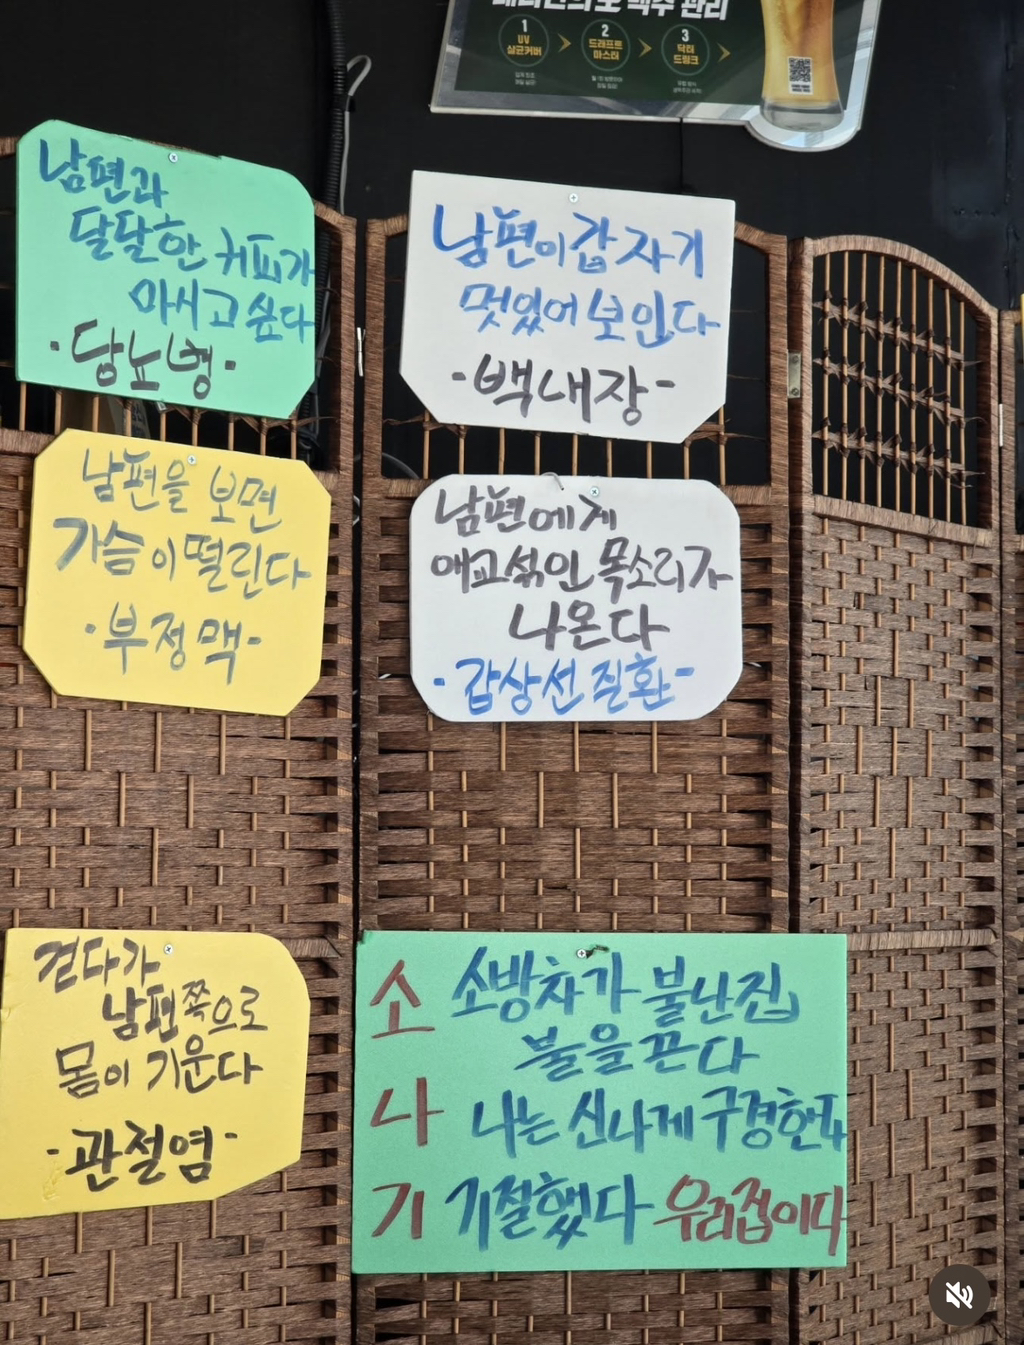 맥주 관리
1
UV
살균커버
2
드래프트
마스터
3
닥터
드링크
남편과
달달한 커피가
마시고 싶다
·당뇨병·
남편이 갑자기
멋있어 보인다
-백내장-
남편을 보면
가슴이 떨린다
·부정맥·
남편에게
애교섞인 목소리가
나온다
·갑상선 질환-
걷다가
남편쪽으로
몸이 기운다
-관절염-
소 소방차가 불난집
불을 끈다
나 나는 신나게 구경한다
기 기절했다 우리집이다